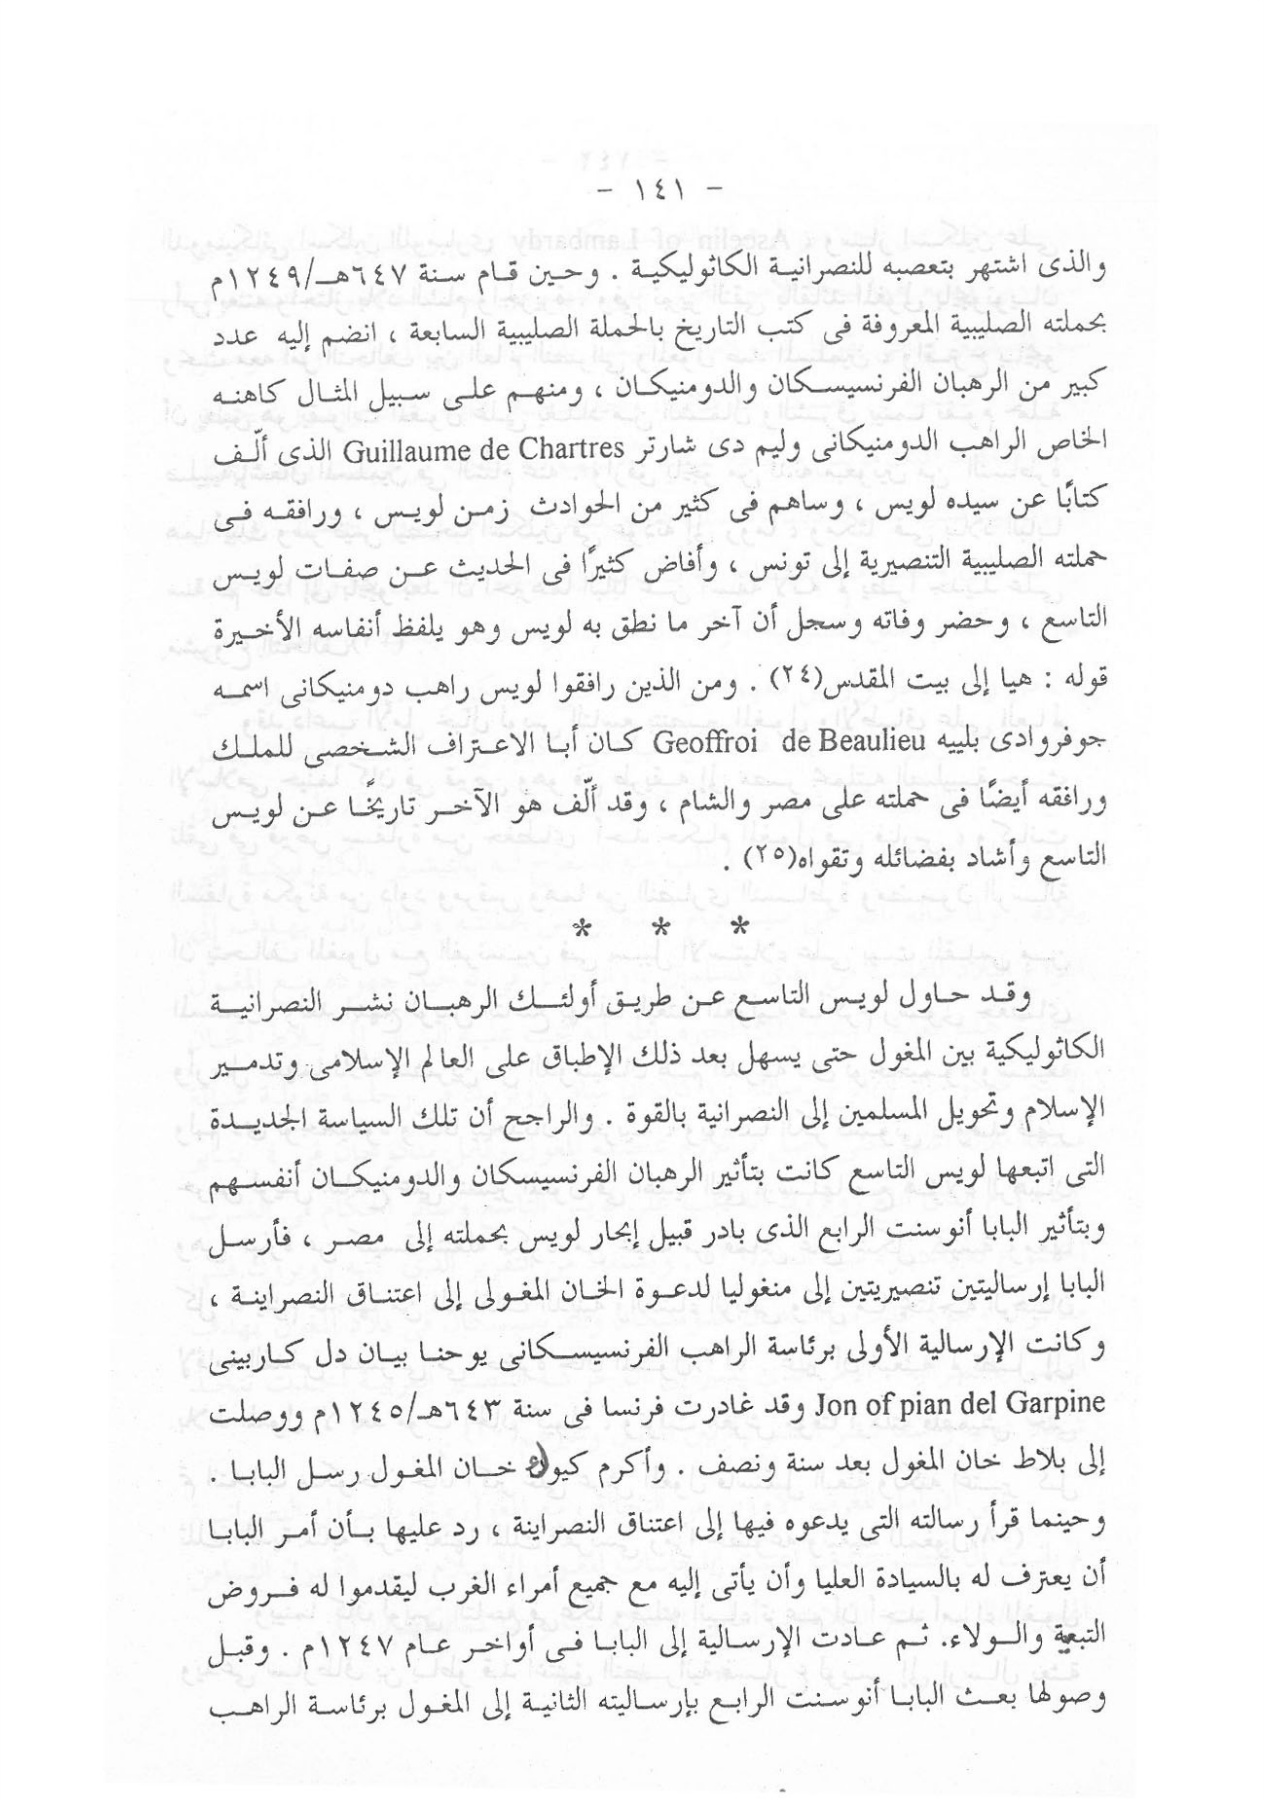 - ١٤١ -
والذى اشتهر بتعصبه للنصرانية الكاثوليكية . وحين قام سنة ٦٤٧هـ/١٢٤٩م
بحملته الصليبية المعروفة فى كتب التاريخ بالحملة الصليبية السابعة ، انضم إليه عدد
كبير من الرهبان الفرنسيسكان والدومنيكان ، ومنهم على سبيل المثال كاهنه
الخاص الراهب الدومنيكانى وليم دى شارتر Guillaume de Chartres الذى ألّف
كتابًا عن سيده لويس ، وساهم فى كثير من الحوادث زمن لويس ، ورافقه فى
حملته الصليبية التنصيرية إلى تونس ، وأفاض كثيرًا فى الحديث عن صفات لويس
التاسع ، وحضر وفاته وسجل أن آخر ما نطق به لويس وهو يلفظ أنفاسه الأخيرة
قوله : هيا إلى بيت المقدس(٢٤) . ومن الذين رافقوا لويس راهب دومنيكانى اسمه
جوفروادى بلييه Geoffroi de Beaulieu كان أبا الاعتراف الشخصى للملك
ورافقه أيضًا فى حملته على مصر والشام ، وقد ألّف هو الآخر تاريخًا عن لويس
التاسع وأشاد بفضائله وتقواه(٢٥) .
* * *
وقد حاول لويس التاسع عن طريق أولئك الرهبان نشر النصرانية
الكاثوليكية بين المغول حتى يسهل بعد ذلك الإطباق على العالم الإسلامى وتدمير
الإسلام وتحويل المسلمين إلى النصرانية بالقوة . والراجح أن تلك السياسة الجديدة
التى اتبعها لويس التاسع كانت بتأثير الرهبان الفرنسيسكان والدومنيكان أنفسهم
وبتأثير البابا أنوسنت الرابع الذى بادر قبيل إبحار لويس بحملته إلى مصر ، فأرسل
البابا إرساليتين تنصيريتين إلى منغوليا لدعوة الخان المغولى إلى اعتناق النصراينة ،
وكانت الإرسالية الأولى برئاسة الراهب الفرنسيسكانى يوحنا بيان دل كاربينى
Jon of pian del Garpine وقد غادرت فرنسا فى سنة ٦٤٣هـ/١٢٤٥م ووصلت
إلى بلاط خان المغول بعد سنة ونصف . وأكرم خان المغول رسل البابا .
وحينما قرأ رسالته التى يدعوه فيها إلى اعتناق النصراينة ، رد عليها بأن أمر البابا
أن يعترف له بالسيادة العليا وأن يأتى إليه مع جميع أمراء الغرب ليقدموا له فروض
التبعية والولاء. ثم عادت الإرسالية إلى البابا فى أواخر عام ١٢٤٧م . وقبل
وصولها بعث البابا أنوسنت الرابع بإرساليته الثانية إلى المغول برئاسة الراهب